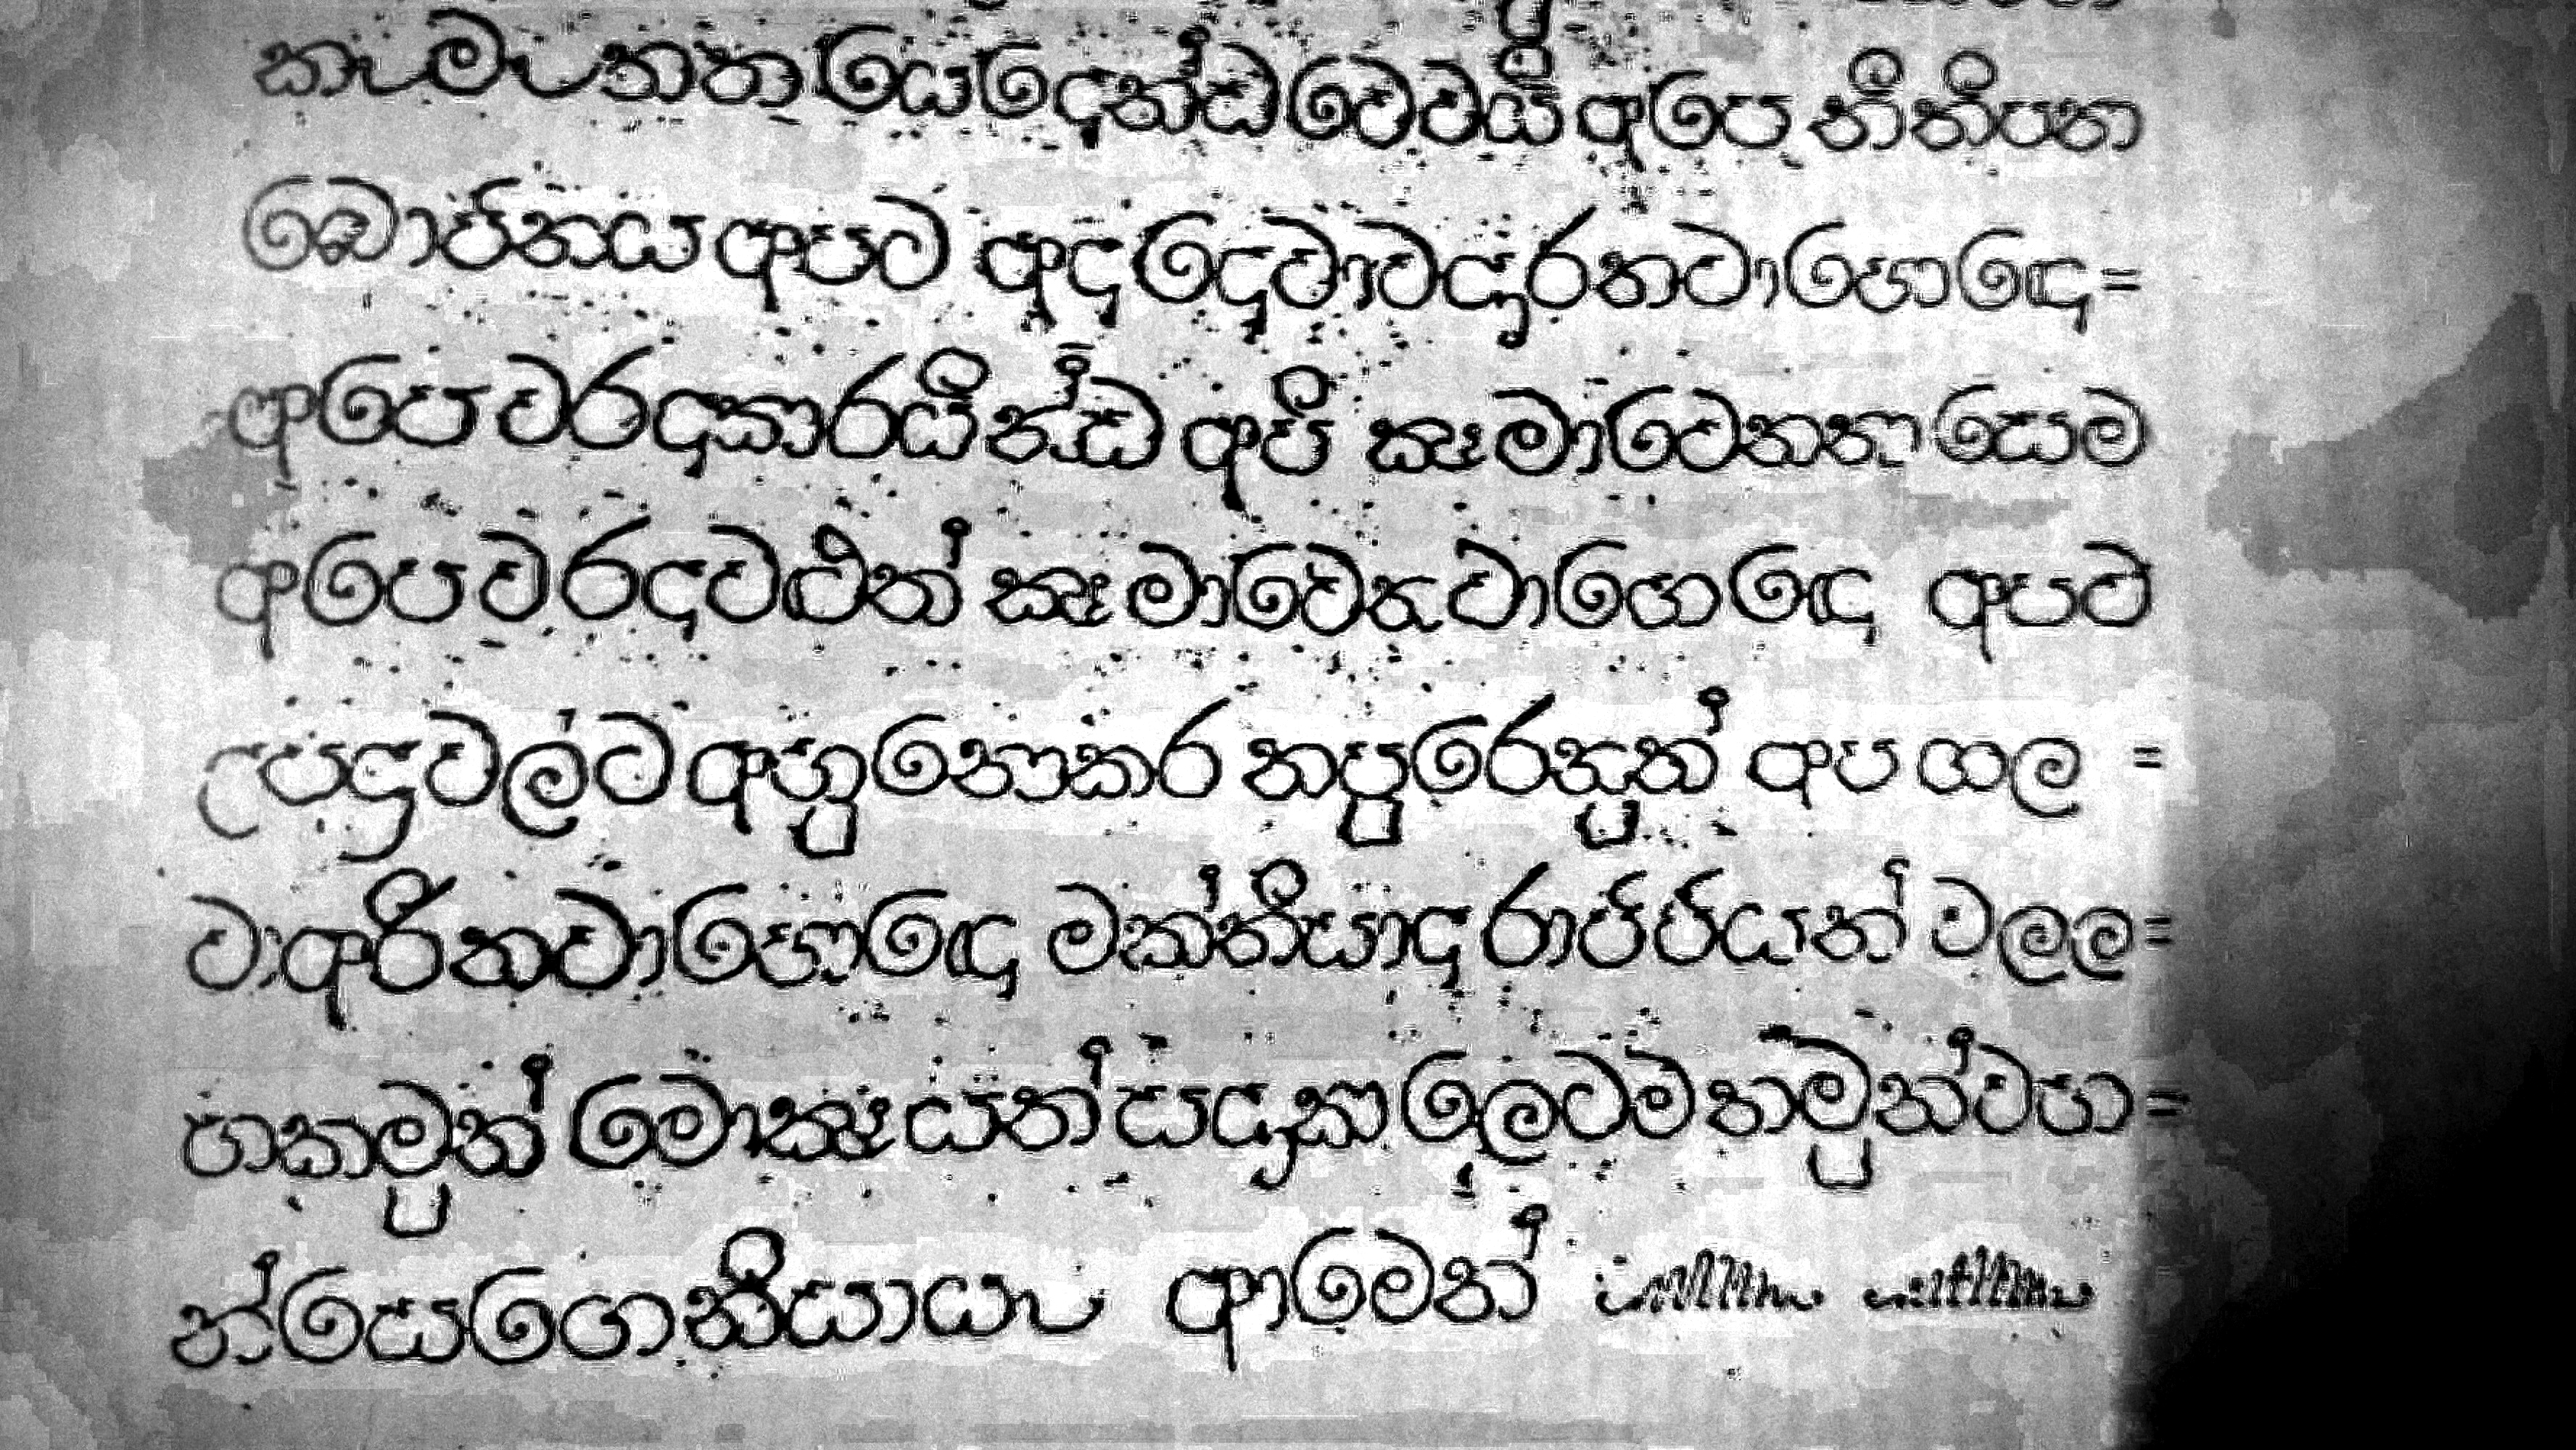 කැමැතත්ත යෙදෙන්ඩ වෙවයි අපෙ නිතිපත
බොජනය අපට අද දෙවාවදෑරනවාහොඳෙ=
අපෙ වරදකාරයින්ඩ අපි ක්‍ෂමාවෙනනාසෙම
අපෙ වරදවළුත් ක්‍ෂමාවෙනවාහොඳෙ අපට
උපද්‍රවල්ට අහුනොකර නපුරෙනුත් අප ගල =
වාඅරිනවාහොඳෙ මක්නියාද රාජ්ජියත් වලල=
හකමුත් මොක්‍ෂයත් සදෑකාලෙටම තමුන්වහ=
න්සෙගෙනියායැ ආමෙන්